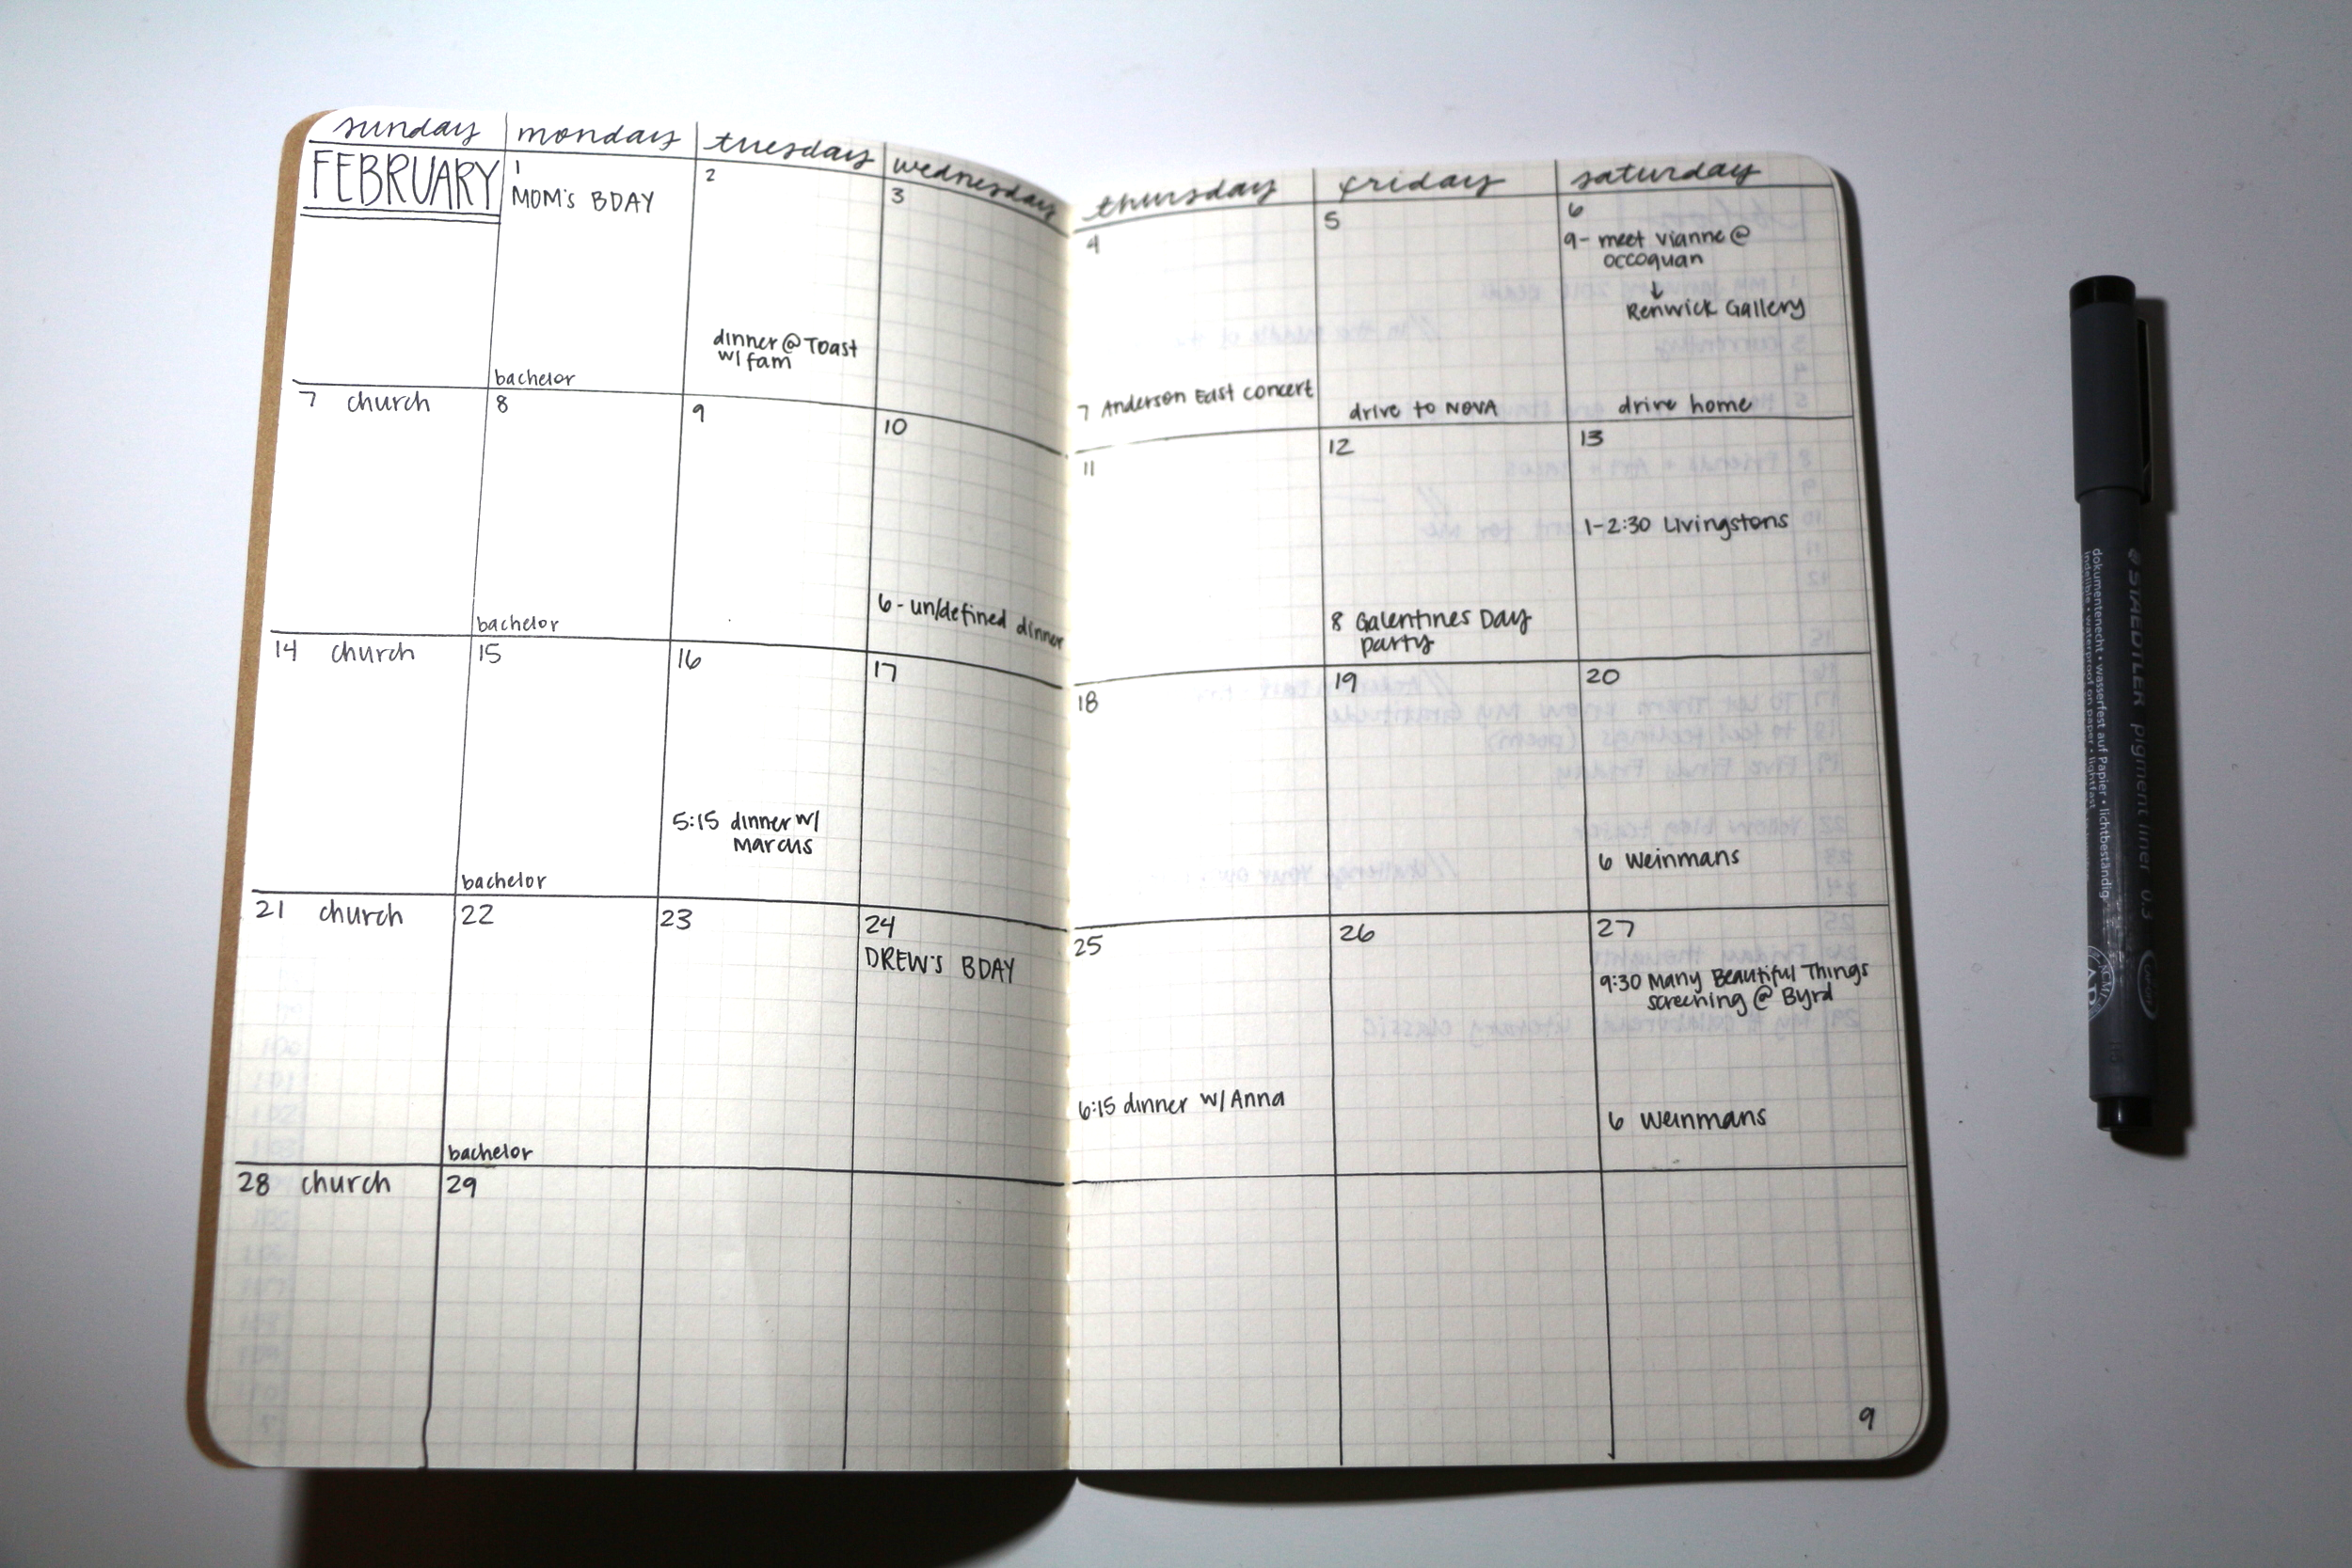 sunday monday tuesday wednesday thursday friday saturday
FEBRUARY
1
MOM'S BDAY
bachelor
2
dinner @ Toast
w/ fam
3
4
7 Anderson East concert
5
drive to NOVA
6
9- meet vianne @
occoquan
↓
Renwick Gallery
drive home
7 church
8
bachelor
9
10
6 - un/defined dinner
11
12
8 Galentines Day
party
13
1-2:30 Livingstons
14 church
15
bachelor
16
5:15 dinner w/
Marcus
17
18
19
20
6 Weinmans
21 church
22
bachelor
23
24
DREW'S BDAY
25
6:15 dinner w/ Anna
26
27
9:30 Many Beautiful Things
screening @ Byrd
6 Weinmans
28 church
29
9
STAEDTLER pigment liner 0.5
dokumentenecht • wasserfest auf Papier • lichtbeständig
indelible • waterproof on paper • lightfast